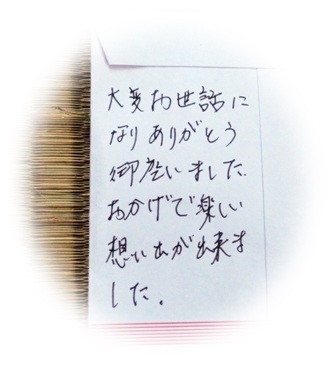 大変お世話に
なりありがとう
御座いました.
おかげで楽しい
想い出が出来ま
した.